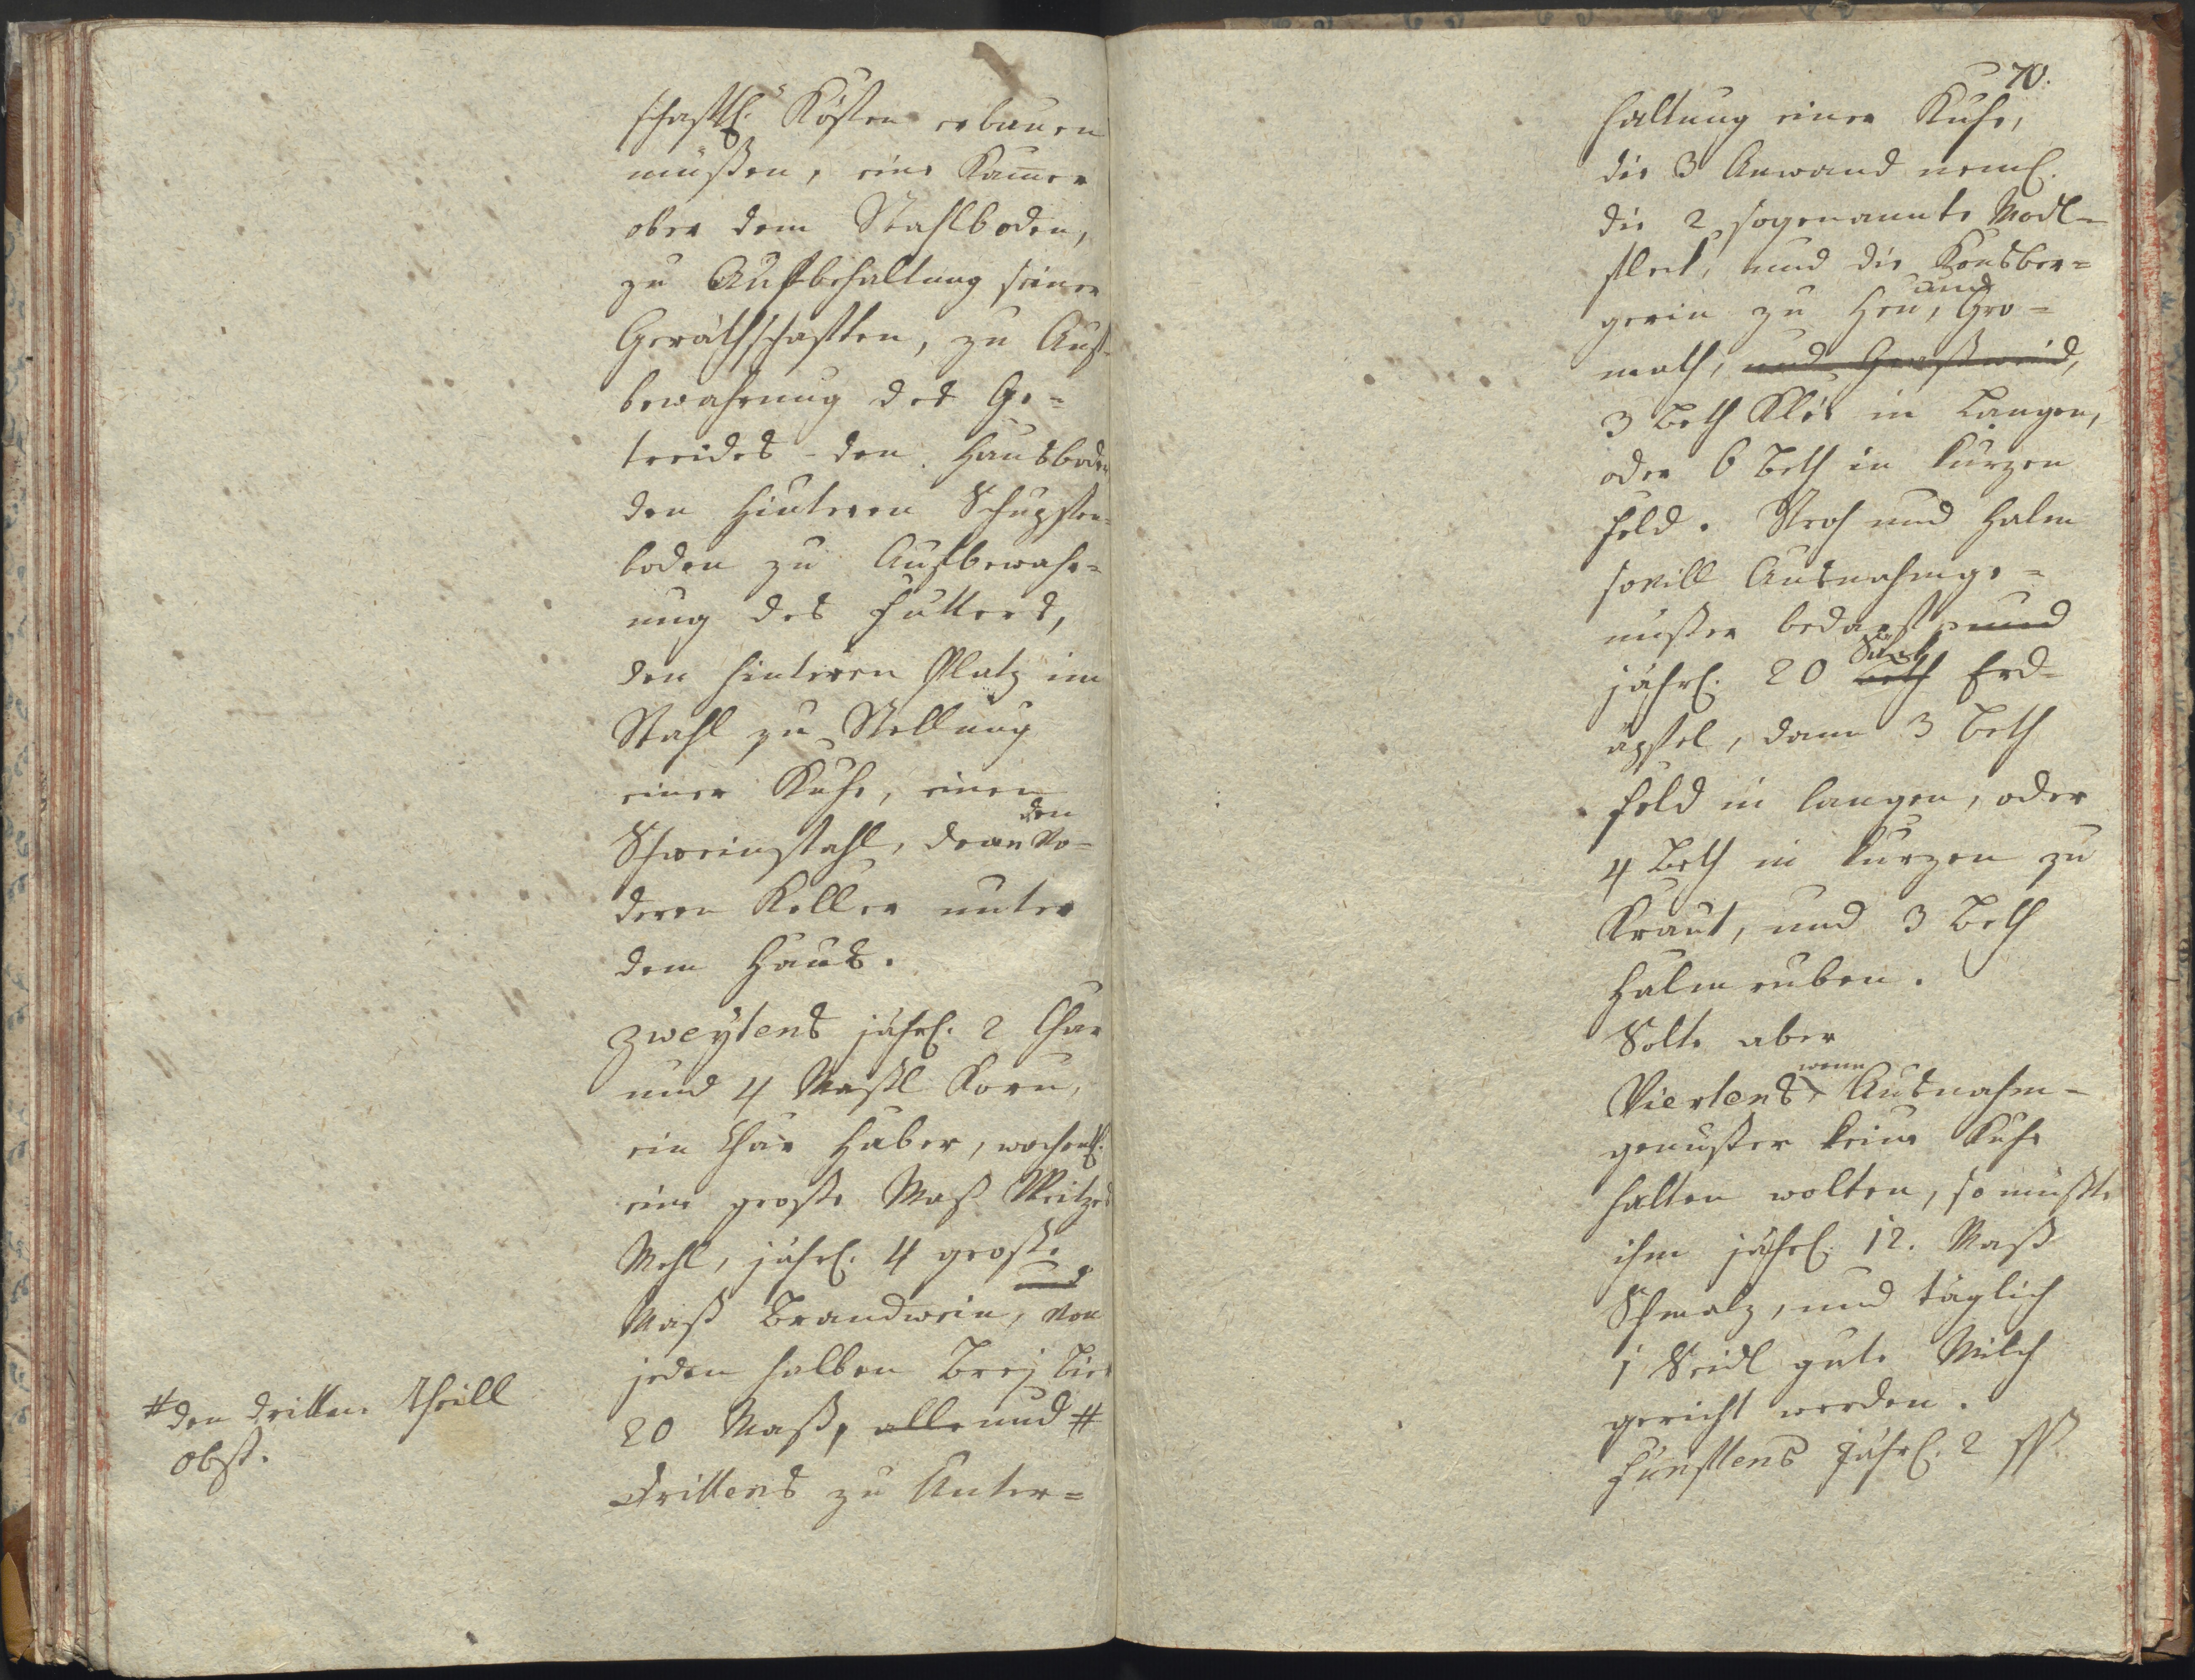 schaftl. Kösten erbauen
müßen, eine Kamer
ober dem Stahlboden,
zu Aufbehaltung seiner
Geräthschaften, zu Auf-
bewahrung des Ge=
treides - den Hausboden
den Hinteren Schupfen=
boden zu Aufbewahr=
ung des Futters,
den hinteren Platz im
Stahl zu Stellung
einer Kuhe, einen
Schweinstahl, dann den Vo=
deren Keller unter
dem Haus.
Zweytens jährl. 2 Char
und 4 Maßl Korn,
ein Char Haber, wochentl.
eine große Maß Weitzes
Mehl, jährl. 4 große
Maß Brandwein, und von
jeden halben Brey Bier
20 Maß, alle und #
# den dritten Theill
obst.
Drittens zu Unter=
70.
haltung einer Kuhe,
die 3 Anwand neml.
die 2 sogenannte Modl=
fleck, und die
gerin zu Heu, und Gro=
math, und Graßweid,
3 Beth Klee in Langen,
oder 6 Beth in kurzen
Feld. Stroh und Halm
sovill Ausnahmge=
nußer bedarf, und
jährl. 20 Beth Erd=
äpfel, dann 3 Beth
Feld in langen, oder
4 Beth in kurzen zu
Kraut, und 3 Beth
Halmruben.
Solte aber
Viertens wenn Ausnahm=
genußer keine Kuhe
halten wolten, so müßte
ihm jährl. 12. Maß
Schmalz, und täglich
1 Seidl gute Milch
gericht werden.
Fünftens Jährl. 2 ℔.